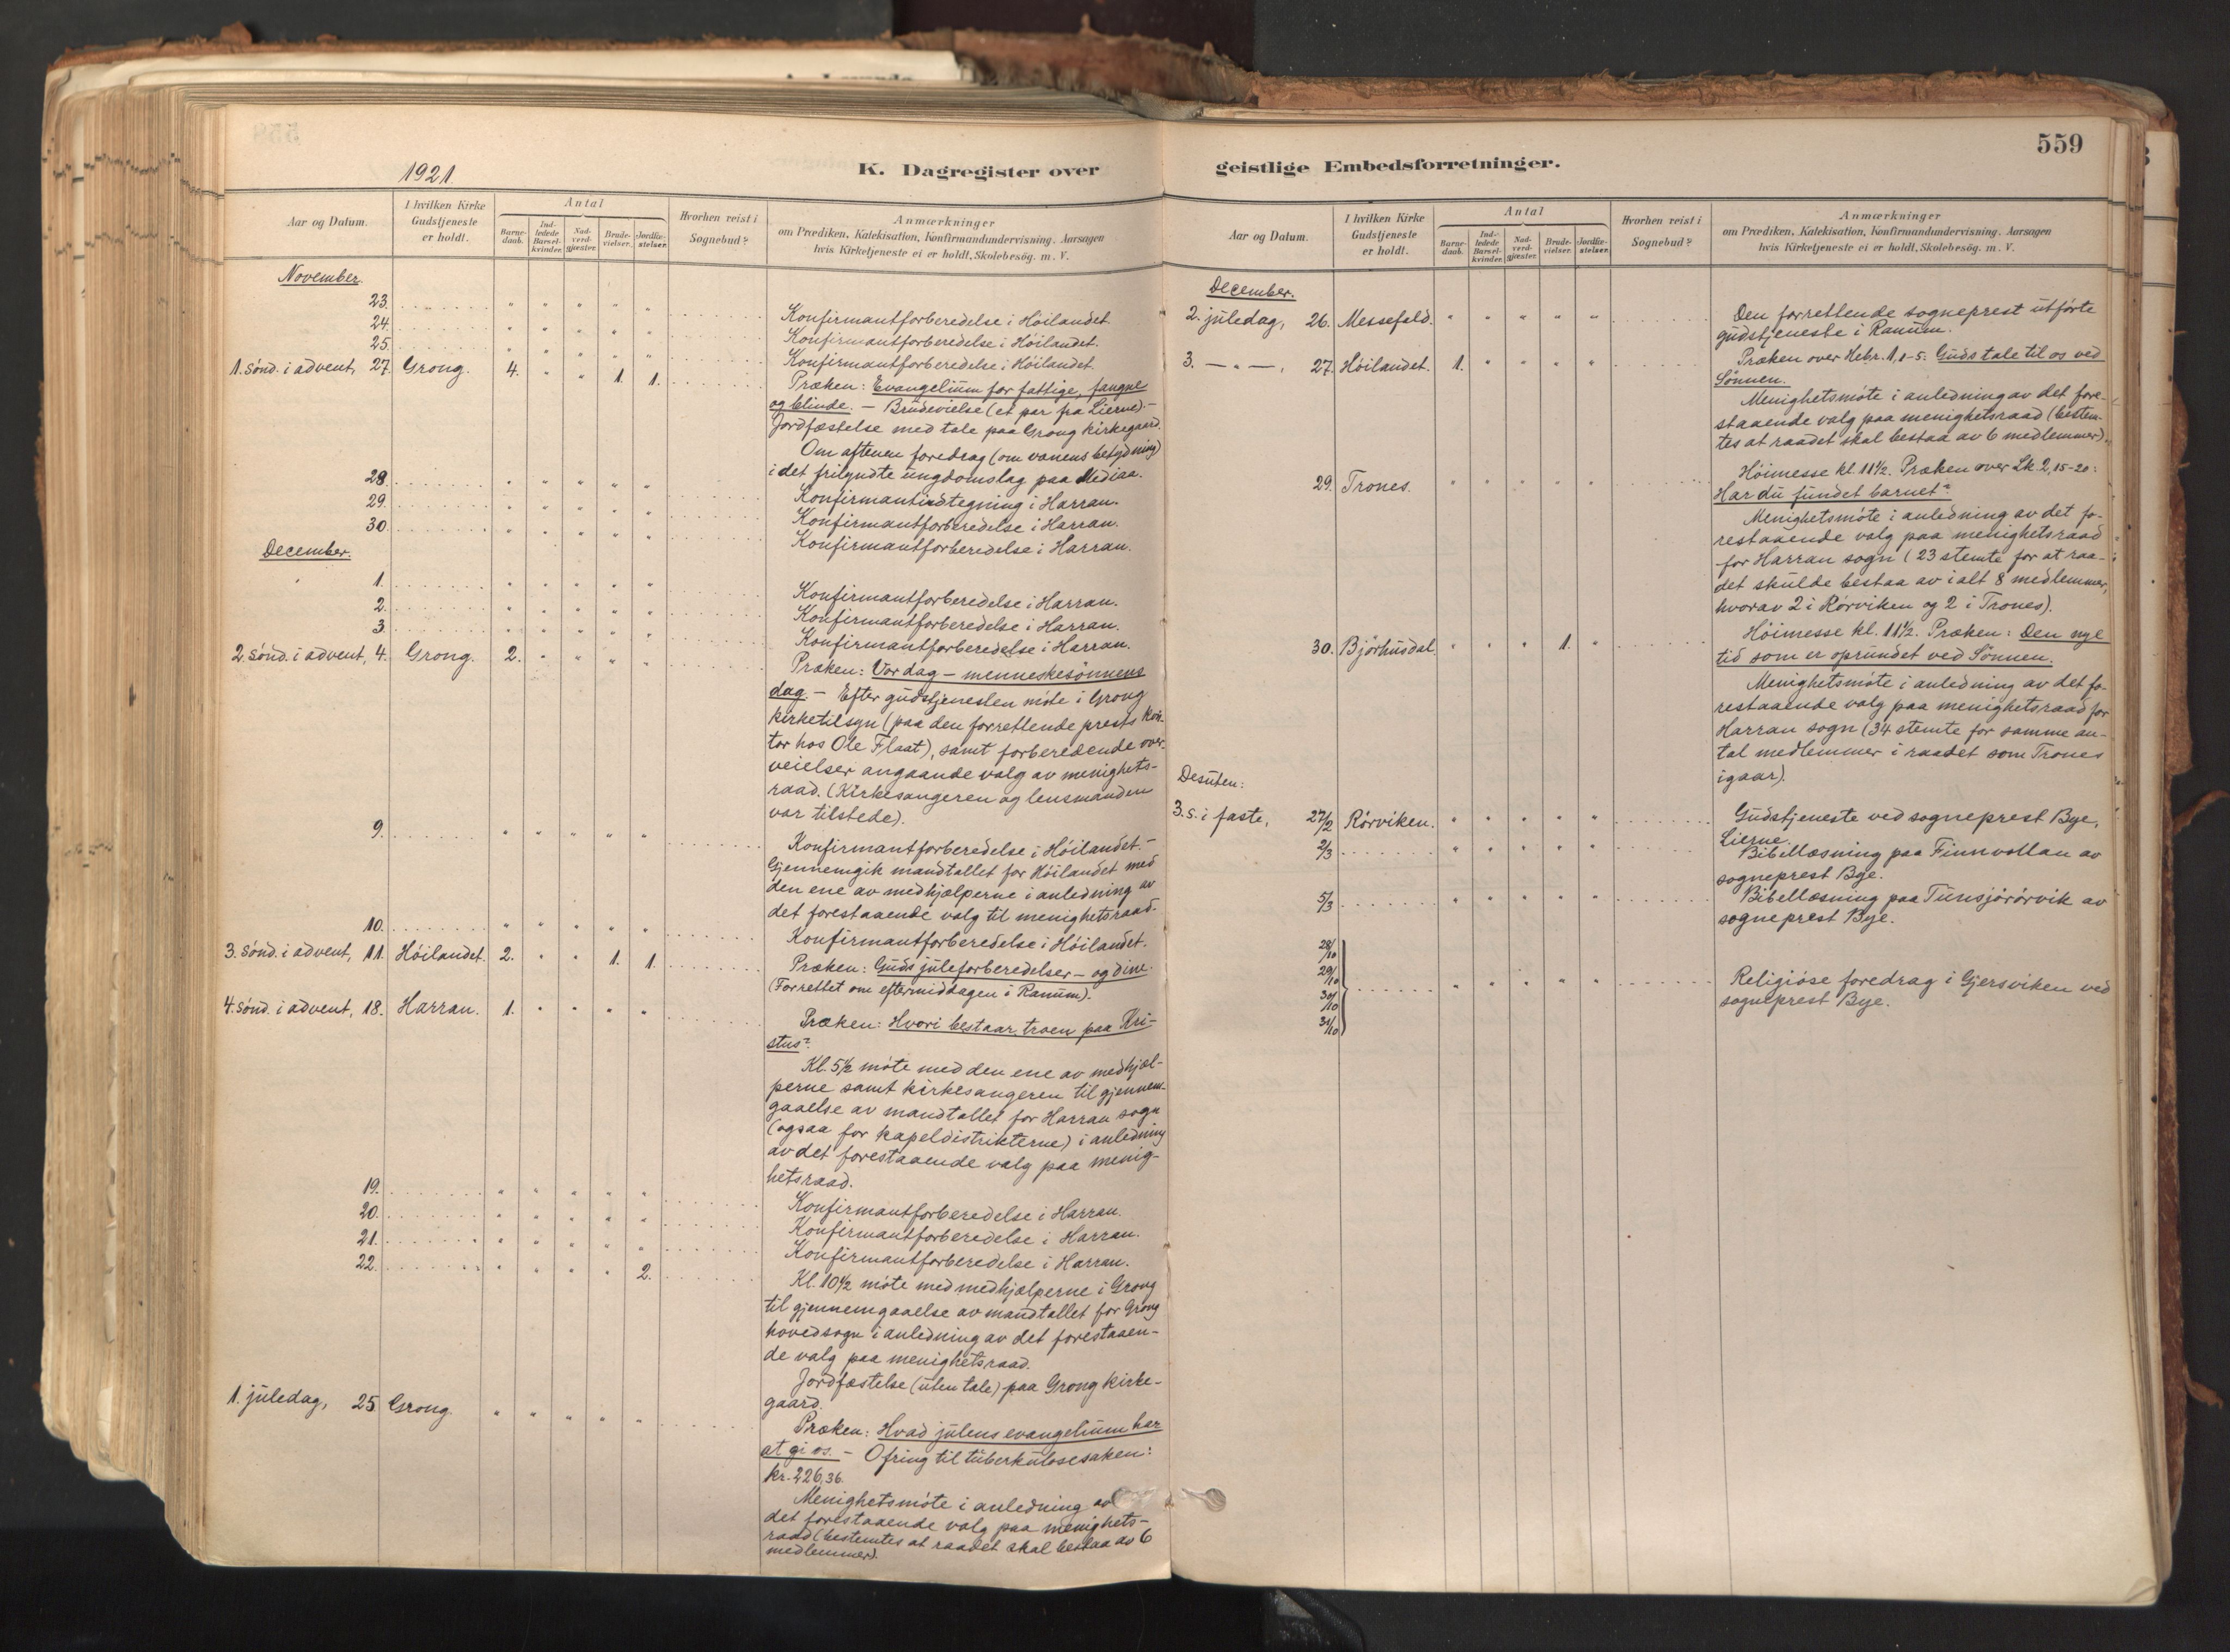 559
1921.
K. Dagregister over
geistlige Embedsforretninger.
Aar og Datum.
I hvilken Kirke
Gudstjeneste
er holdt.
Antal
Barne-
daab.
Ind-
ledede
Barsel-
kvinder.
Nad-
verd-
gjæster.
Brude-
vielser.
Jordfæ-
stelser.
Hvorhen reist i
Sognebud?
Anmærkninger
om Prædiken, Katekisation, Konfirmandundervisning. Aarsagen
hvis Kirketjeneste ei er holdt, Skolebesög. m. V.
November.
23. Konfirmantforberedelse i Höilandet.
24. Konfirmantforberedelse i Höilandet.
25. Konfirmantforberedelse i Höilandet.
1. sönd. i advent, 27. Grong. 4. " " 1. 1. Præken: Evangelium for fattige, fangne
og blinde. — Brudevielse (et par fra Lierne). —
Jordfæstelse med tale paa Grong kirkegaard.
Om aftenen foredrag (om vanens betydning)
i det frilyndte ungdomslag paa Mediaa.
28. Konfirmantindtegning i Harran.
29. Konfirmantforberedelse i Harran.
30. Konfirmantforberedelse i Harran.
December.
1. Konfirmantforberedelse i Harran.
2. Konfirmantforberedelse i Harran.
3. Konfirmantforberedelse i Harran.
2. sönd. i advent, 4. Grong. 2. " " " " Præken: Vor dag — menneskesönnens
dag. — Efter gudstjenesten möte i Grong
kirketilsyn (paa den forrettende prests kon-
tor hos Ole Flaat), samt forberedende over-
veielser angaaende valg av menighets-
raad. (Kirkesangeren og lensmanden
var tilstede).
9. Konfirmantforberedelse i Höilandet. —
Gjennemgik mandtallet for Höilandet med
den ene av medhjælperne i anledning av
det forestaaende valg til menighetsraad.
10. Konfirmantforberedelse i Höilandet.
3. sönd. i advent, 11. Höilandet. 2. " " 1. 1. Præken: Guds juleforberedelser — og dine.
(Forrettet om eftermiddagen i Ranum).
4. sönd. i advent, 18. Harran. 1. " " " " Præken: Hvori bestaar troen paa Kri-
stus?
Kl. 5½ möte med den ene av medhjæl-
perne samt kirkesangeren til gjennem-
gaaelse av mandtallet for Harran sogn
(ogsaa for kapeldistrikterne) i anledning
av det forestaaende valg paa menig-
hetsraad.
19. Konfirmantforberedelse i Harran.
20. Konfirmantforberedelse i Harran.
21. Konfirmantforberedelse i Harran.
22. " " " " 2. Kl. 10½ möte med medhjælperne i Grong
til gjennemgaaelse av mandtallet for Grong
hovedsogn i anledning av det forestaaen-
de valg paa menighetsraad.
Jordfæstelse (uten tale) paa Grong kirke-
gaard.
1. juledag, 25. Grong. " " " " " Præken: Hvad julens evangelium har
at gi os. — Ofring til tuberkulosesaken:
kr. 226,36.
Menighetsmöte i anledning av
det forestaaende valg paa menighets-
raad (bestemtes at raadet skal bestaa av 6
medlemmer).
Aar og Datum.
I hvilken Kirke
Gudstjeneste
er holdt.
Antal
Barne-
daab.
Ind-
ledede
Barsel-
kvinder.
Nad-
verd-
gjæster.
Brude-
vielser.
Jordfæ-
stelser.
Hvorhen reist i
Sognebud?
Anmærkninger
om Prædiken, Katekisation, Konfirmandundervisning. Aarsagen
hvis Kirketjeneste ei er holdt, Skolebesög. m. V.
December.
2. juledag, 26. Messefald. " " " " " Den forrettende sogneprest utförte
gudstjeneste i Ranum.
3. — " —, 27. Höilandet. 1. " " " " Præken over Hebr. 1,1-5: Guds tale til os ved
Sönnen.
Menighetsmöte i anledning av det fore-
staaende valg paa menighetsraad (bestem-
tes at raadet skal bestaa av 6 medlemmer).
29. Trones. " " " " " Höimesse kl. 11½. Præken over Lk. 2,15-20:
Har du fundet barnet?
Menighetsmöte i anledning av det fo-
restaaende valg paa menighetsraad
for Harran sogn (23 stemte for at raa-
det skulde bestaa av i alt 8 medlemmer,
hvorav 2 i Rörviken og 2 i Trones).
30. Bjørhusdal. " " " 1. " Höimesse kl. 11½. Præken: Den nye
tid som er oprundet ved Sönnen.
Menighetsmöte i anledning av det fo-
restaaende valg paa menighetsraad for
Harran sogn (34 stemte for samme an-
tal medlemmer i raadet som Trones
igaar).
Desuten:
3. s. i faste, 27/2 Rörviken. " " " " " Gudstjeneste ved sogneprest Bye,
Lierne.
2/3 Bibellæsning paa Finnvollan av
sogneprest Bye.
5/3 Bibellæsning paa Tunsjörörvik av
sogneprest Bye.
28/10
29/10
30/10
31/10
Religiöse foredrag i Gjersviken ved
sogneprest Bye.